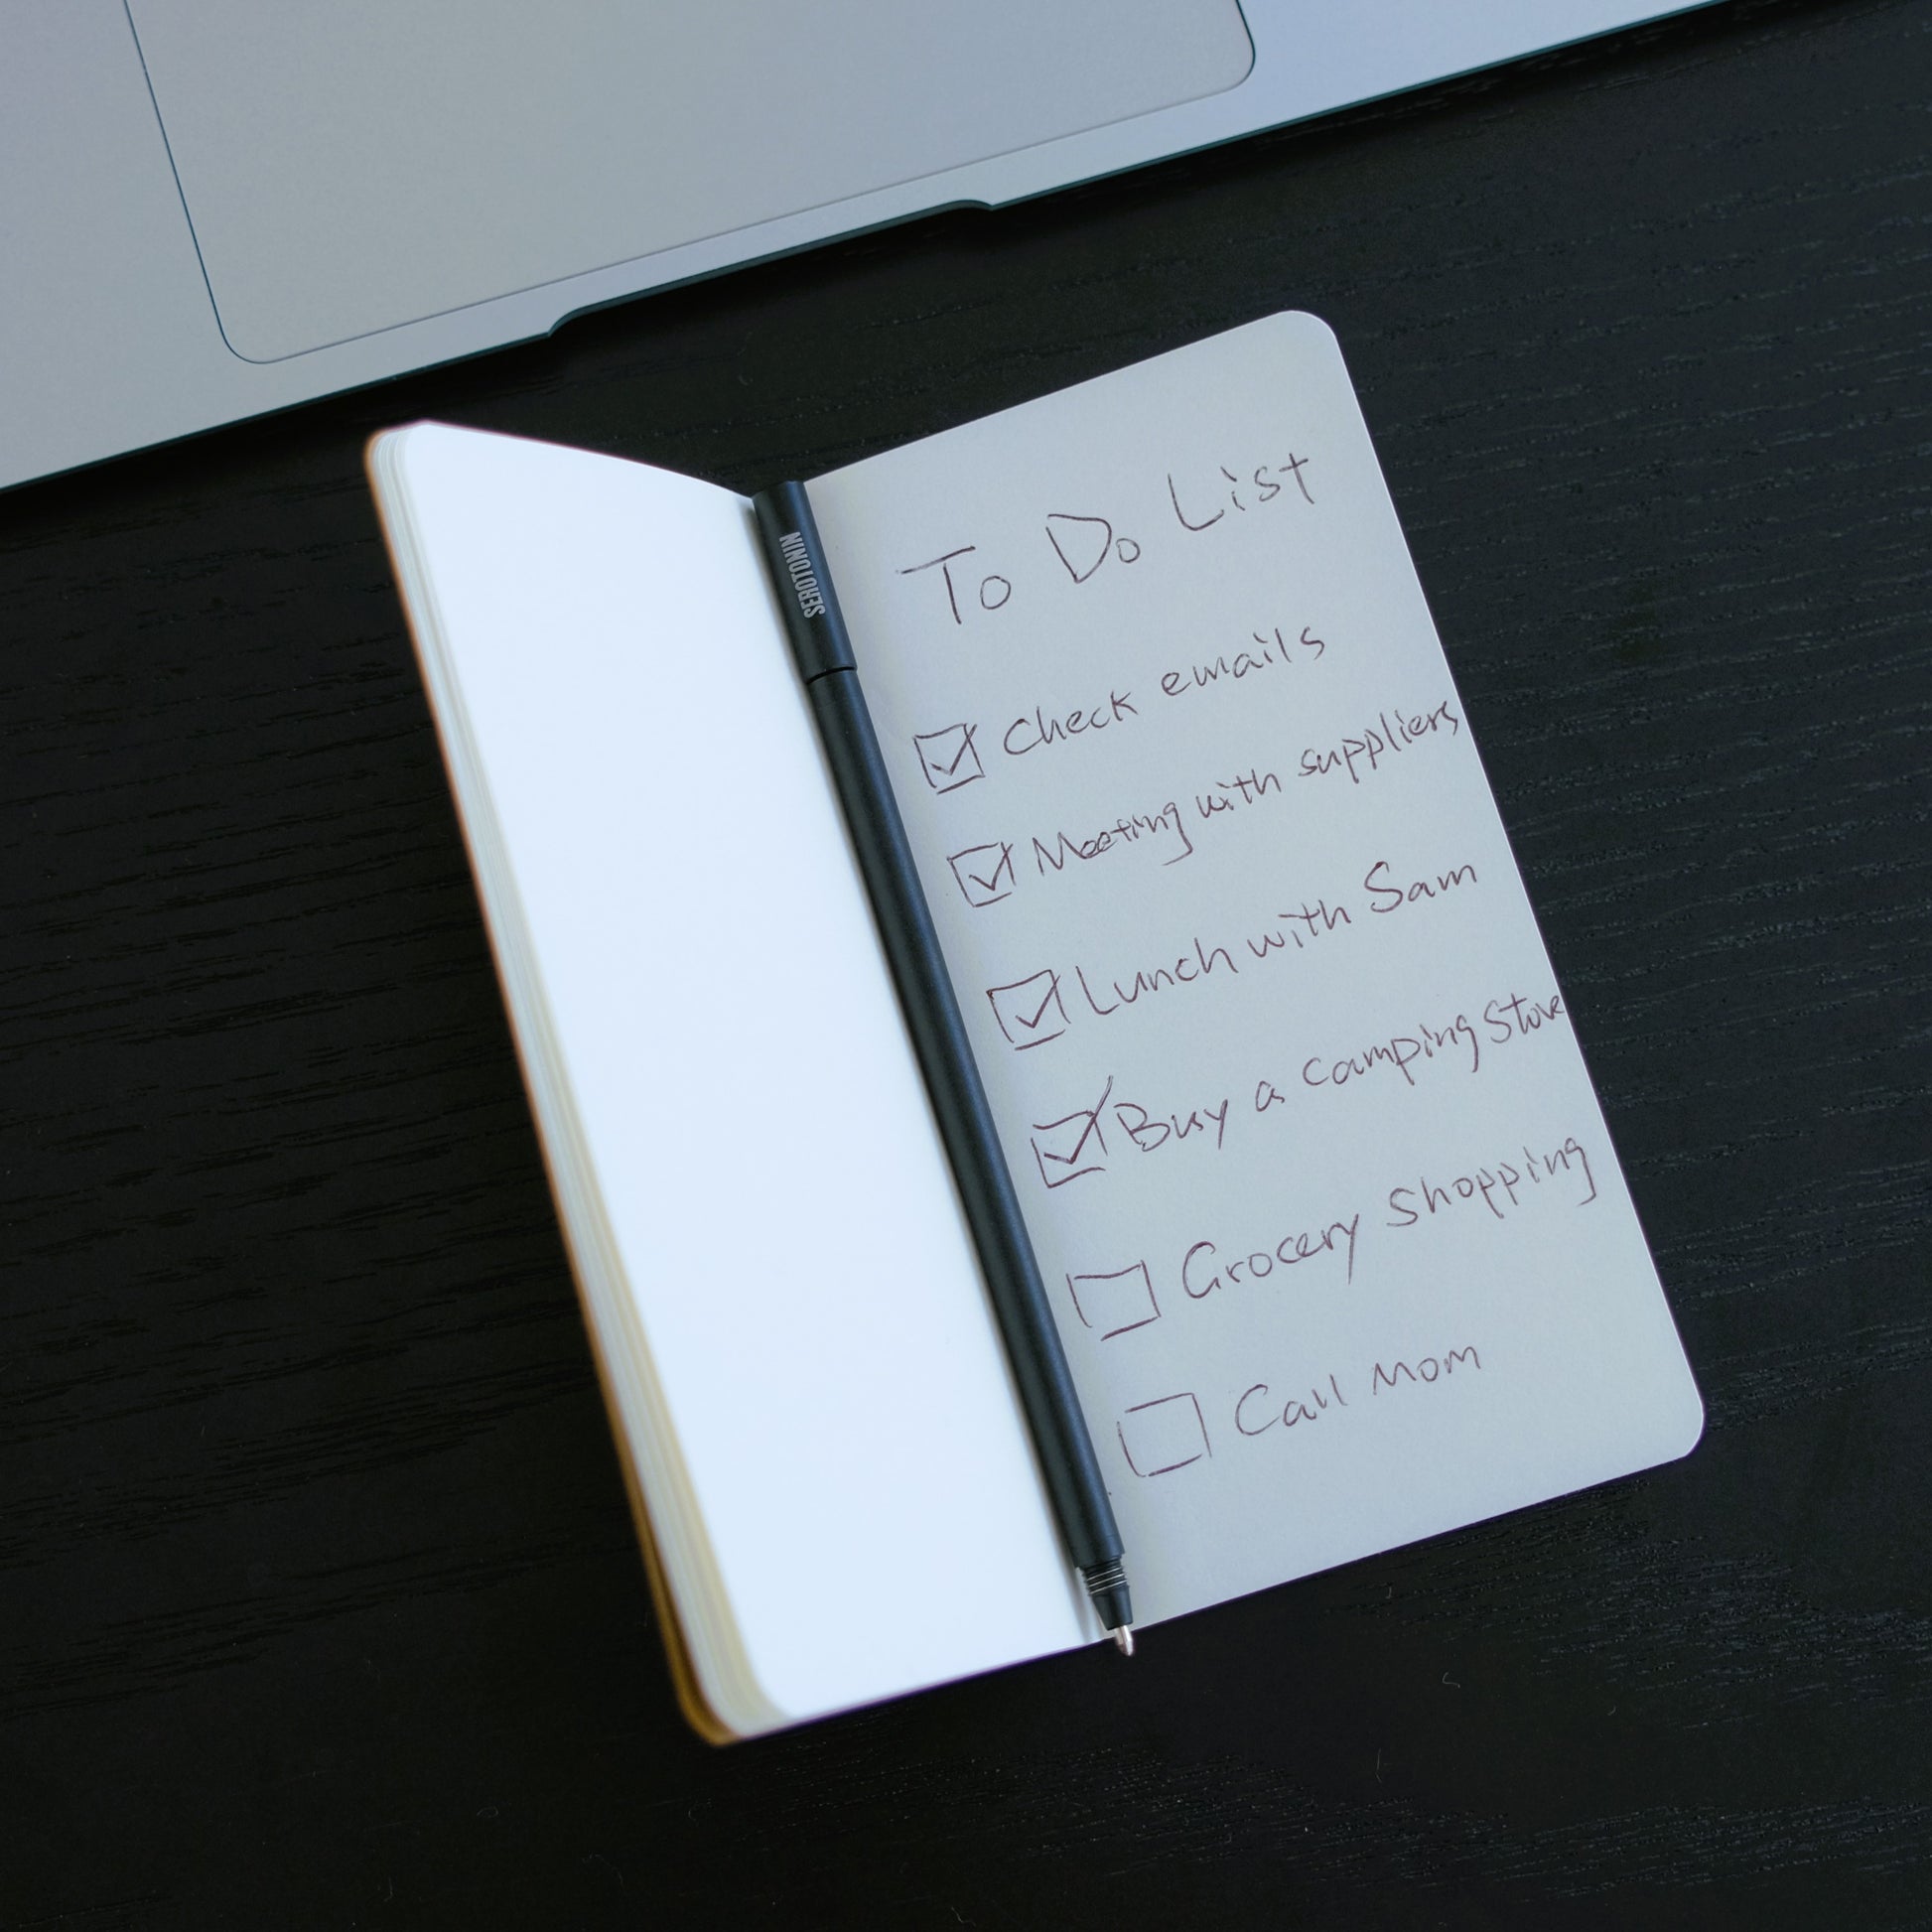 SEROTONIN
To Do List
Check emails
Meeting with suppliers
Lunch with Sam
Buy a camping Stove
Grocery Shopping
Call Mom